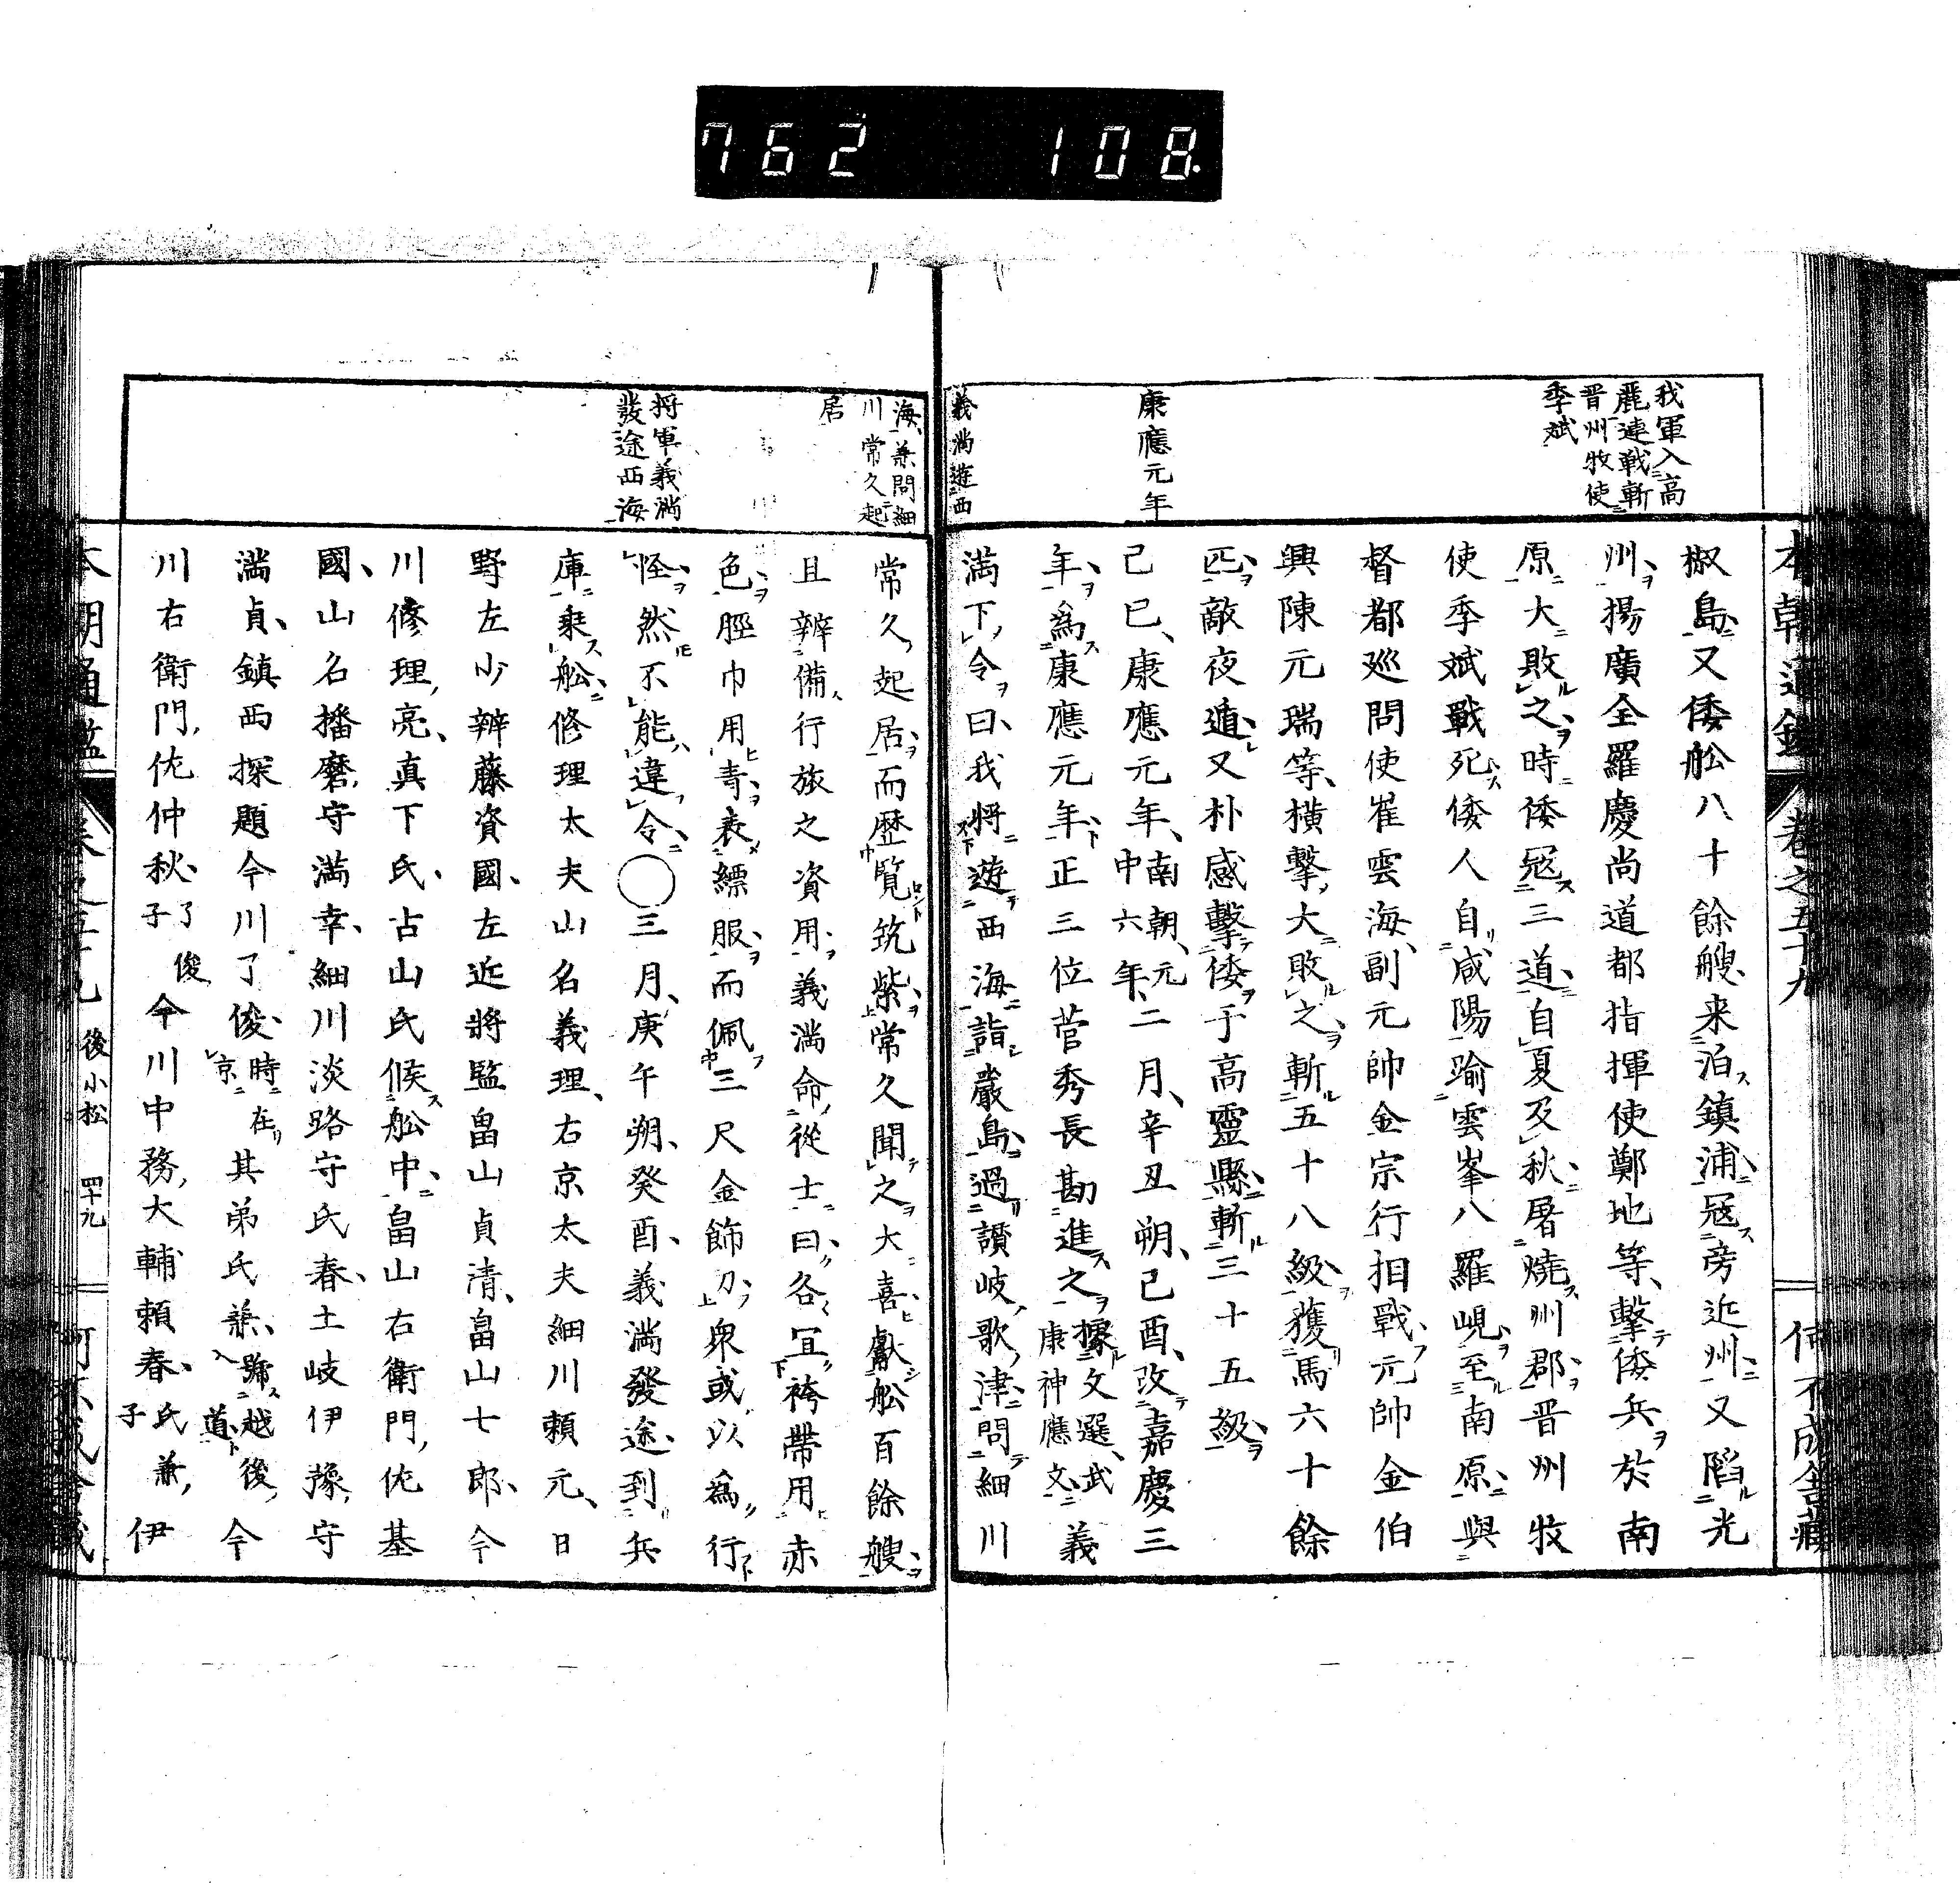 762 108
本朝通鑑 卷之五十九 何不成舍藏
我軍入高
麗連戰斬
晋州牧使
季斌
康應元年
義満遊西
椒島又倭舩八十餘艘来泊鎮浦冦旁近州又陷光
州揚廣全羅慶尚道都指揮使鄭地等擊倭兵於南
原大敗之時倭冦三道自夏及秋屠燒州郡晋州牧
使季斌戰死倭人自咸陽踰雲峯八羅峴至南原與
督都廵問使崔雲海副元帥金宗行相戰元帥金伯
興陳元瑞等橫擊大敗之斬五十八級獲馬六十餘
匹敵夜遁又朴葴擊倭于高靈縣斬三十五級
己巳康應元年南朝元中六年二月辛丑朔己酉改嘉慶三
年為康應元年正三位菅秀長勘進之據文選武康神應文義
満下令曰我將遊西海詣嚴島過讃岐歌津問細川
海兼問細
川常久起
居
将軍義満
發途西海
常久起居而歴覧筑紫常久聞之大喜獻舩百餘艘
且辨備行旅之資用義満命從士曰各宜袴帶用赤
色脛巾用青衷縹服而佩三尺金飾刀衆或以為行
怪然不能違令○三月庚午朔癸酉義満發途到兵
庫乗舩修理太夫山名義理右京太夫細川頼元日
野左少辨藤資國左近將監畠山貞清畠山七郎今
川修理亮真下氏古山氏候舩中畠山右衛門佐基
國山名播磨守満幸細川淡路守氏春土岐伊豫守
満貞鎮西探題今川了俊時在京其弟氏兼號越後入道今
川右衛門佐仲秋了俊子今川中務大輔頼春氏兼子伊
本朝通鑑 卷之五十九 後小松 四十九 何不成舍藏